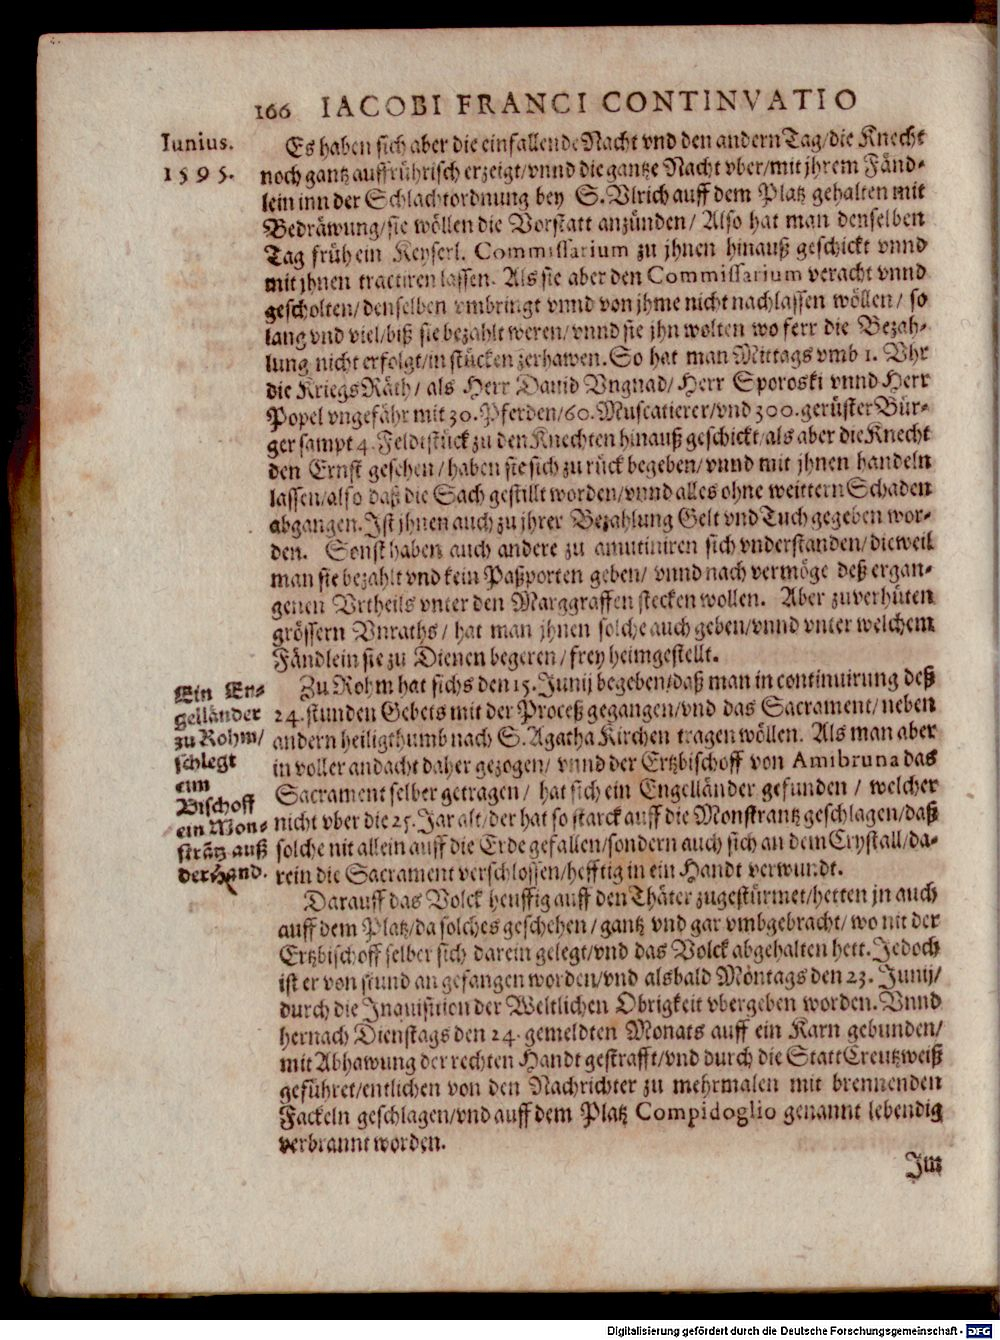 166 IACOBI FRANCI CONTINVATIO
Iunius.
1595.
Es haben sich aber die einfallende Nacht vnd den andern Tag/die Knecht
noch gantz auffrührisch erzeigt/vnnd die gantze Nacht vber/mit jhrem Fänd-
lein inn der Schlachtordnung bey S. Vlrich auff dem Platz gehalten mit
Bedräwung/sie wöllen die Vorstatt anzünden/ Also hat man denselben
Tag früh ein Keyserl. Commissarium zu jhnen hinauß geschickt vnnd
mit jhnen tractiren lassen. Als sie aber den Commissarium veracht vnnd
gescholten/denselben vmbringt vnnd von jhme nicht nachlassen wöllen/ so
lang vnd viel/biß sie bezahlt weren/vnnd sie jhn wolten wo ferr die Bezah-
lung nicht erfolgt/in stücken zerhawen. So hat man Mittags vmb 1. Vhr
die KriegsRäth/ als Herr Dauid Vngnad/ Herr Sporoski vnnd Herr
Popel vngefähr mit 30. Pferden/60. Muscatierer/vnd 300. gerüster Bür-
ger sampt 4. Feldtstück zu den Knechten hinauß geschickt/als aber die Knecht
den Ernst gesehen/haben sie sich zu rück begeben/vnnd mit jhnen handeln
lassen/also daß die Sach gestillt worden/vnnd alles ohne weittern Schaden
abgangen. Ist jhnen auch zu jhrer Bezahlung Gelt vnd Tuch gegeben wor-
den. Sonst haben auch andere zu amutiniren sich vnderstanden/dieweil
man sie bezahlt vnd kein Paßporten geben/ vnnd nach vermöge deß ergan-
genen Vrtheils vnter den Marggraffen stecken wollen. Aber zuverhüten
grössern Vnraths/ hat man jhnen solche auch geben/vnnd vnter welchem
Fändlein sie zu Dienen begeren/frey heimgestellt.
Ein En-
gelländer
zu Rohm/
schlegt
eim
Bischoff
ein Mon-
strätz auß
der Hand.
Zu Rohm hat sichs den 15. Junij begeben/daß man in continuirung deß
24. stunden Gebets mit der Proceß gegangen/vnd das Sacrament/neben
andern heiligthumb nach S. Agatha Kirchen tragen wöllen. Als man aber
in voller andacht daher gezogen/ vnnd der Ertzbischoff von Amibruna das
Sacrament selber getragen/ hat sich ein Engelländer gefunden / welcher
nicht vber die 25. Jar alt/der hat so starck auff die Monstrantz geschlagen/daß
solche nit allein auff die Erde gefallen/sondern auch sich an dem Crystall/da-
rein die Sacrament verschlossen/hefftig in ein Handt verwundt.
Darauff das Volck heuffig auff den Thäter zugestürmet/hetten jn auch
auff dem Platz/da solches geschehen/gantz vnd gar vmbgebracht/wo nit der
Ertzbischoff selber sich darein gelegt/vnd das Volck abgehalten hett. Jedoch
ist er von stund an gefangen worden/vnd alsbald Möntags den 23. Junij/
durch die Inquisition der Weltlichen Obrigkeit vbergeben worden. Vnnd
hernach Dienstags den 24. gemeldten Monats auff ein Karn gebunden/
mit Abhawung der rechten Handt gestrafft/vnd durch die Statt Creutzweiß
geführet/entlichen von den Nachrichter zu mehrmalen mit brennenden
Fackeln geschlagen/vnd auff dem Platz Compidoglio genannt lebendig
verbrannt worden.
Im
Digitalisierung gefördert durch die Deutsche Forschungsgemeinschaft - DFG